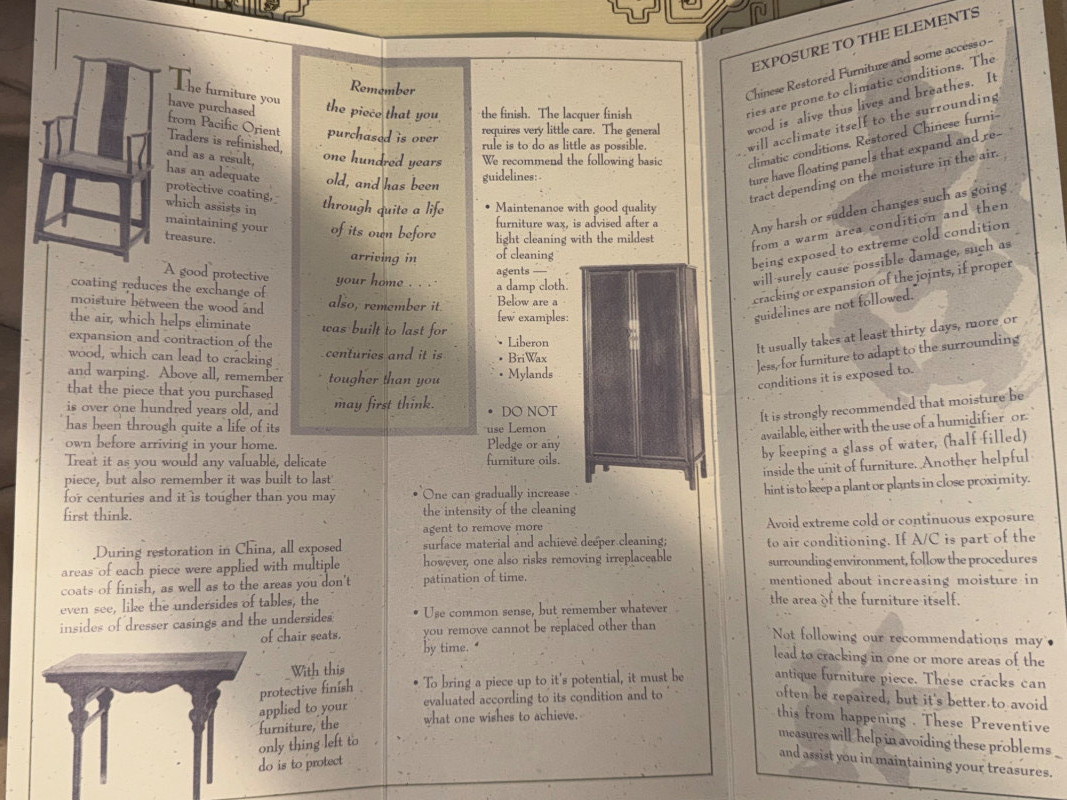 The furniture you
have purchased
from Pacific Orient
Traders is refinished,
and as a result,
has an adequate
protective coating,
which assists in
maintaining your
treasure.
A good protective
coating reduces the exchange of
moisture between the wood and
the air, which helps eliminate
expansion and contraction of the
wood, which can lead to cracking
and warping. Above all, remember
that the piece that you purchased
is over one hundred years old, and
has been through quite a life of its
own before arriving in your home.
Treat it as you would any valuable, delicate
piece, but also remember it was built to last
for centuries and it is tougher than you may
first think.
During restoration in China, all exposed
areas of each piece were applied with multiple
coats of finish, as well as to the areas you don't
even see, like the undersides of tables, the
insides of dresser casings and the undersides
of chair seats.
With this
protective finish
applied to your
furniture, the
only thing left to
do is to protect
Remember
the piece that you
purchased is over
one hundred years
old, and has been
through quite a life
of its own before
arriving in
your home . . . .
also, remember it
was built to last for
centuries and it is
tougher than you
may first think.
the finish. The lacquer finish
requires very little care. The general
rule is to do as little as possible.
We recommend the following basic
guidelines:
• Maintenance with good quality
furniture wax, is advised after a
light cleaning with the mildest
of cleaning
agents —
a damp cloth.
Below are a
few examples:
• Liberon
• BriWax
• Mylands
• DO NOT
use Lemon
Pledge or any
furniture oils.
• One can gradually increase
the intensity of the cleaning
agent to remove more
surface material and achieve deeper cleaning;
however, one also risks removing irreplaceable
patination of time.
• Use common sense, but remember whatever
you remove cannot be replaced other than
by time.
• To bring a piece up to it's potential, it must be
evaluated according to its condition and to
what one wishes to achieve.
EXPOSURE TO THE ELEMENTS
Chinese Restored Furniture and some accesso-
ries are prone to climatic conditions. The
wood is alive thus lives and breathes. It
will acclimate itself to the surrounding
climatic conditions. Restored Chinese furni-
ture have floating panels that expand and re-
tract depending on the moisture in the air.
Any harsh or sudden changes such as going
from a warm area condition and then
being exposed to extreme cold condition
will surely cause possible damage, such as
cracking or expansion of the joints, if proper
guidelines are not followed.
It usually takes at least thirty days, more or
less, for furniture to adapt to the surrounding
conditions it is exposed to.
It is strongly recommended that moisture be
available, either with the use of a humidifier or
by keeping a glass of water, (half filled)
inside the unit of furniture. Another helpful
hint is to keep a plant or plants in close proximity.
Avoid extreme cold or continuous exposure
to air conditioning. If A/C is part of the
surrounding environment, follow the procedures
mentioned about increasing moisture in
the area of the furniture itself.
Not following our recommendations may
lead to cracking in one or more areas of the
antique furniture piece. These cracks can
often be repaired, but it's better to avoid
this from happening . These Preventive
measures will help in avoiding these problems
and assist you in maintaining your treasures.